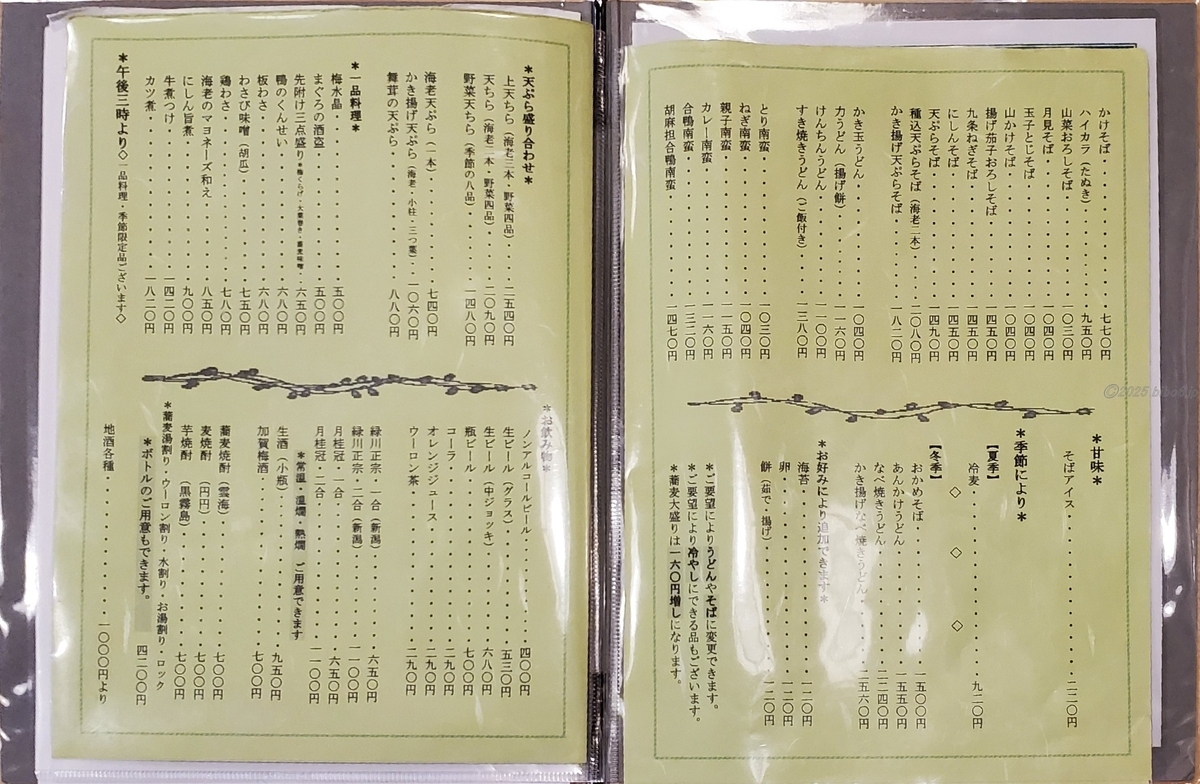 かけそば・・・七七〇円
ハイカラ（たぬき）・・・九五〇円
山菜おろしそば・・・一〇三〇円
月見そば・・・一〇四〇円
玉子とじそば・・・一〇四〇円
山かけそば・・・一〇四〇円
揚げ茄子おろしそば・・・一四五〇円
九条ねぎそば・・・一四五〇円
にしんそば・・・一四五〇円
天ぷらそば・・・一四九〇円
種込天ぷらそば（海老二本）・・・二〇八〇円
かき揚げ天ぷらそば・・・一八二〇円
かき玉うどん・・・一〇四〇円
力うどん（揚げ餅）・・・一一六〇円
けんちんうどん・・・一一〇〇円
すき焼きうどん（ご飯付き）・・・一三八〇円
とり南蛮・・・一〇三〇円
ねぎ南蛮・・・一〇四〇円
親子南蛮・・・一一五〇円
カレー南蛮・・・一一六〇円
合鴨南蛮・・・一三二〇円
胡麻担合鴨南蛮・・・一四七〇円
＊甘味＊
そばアイス・・・二二〇円
＊季節により＊
【夏季】
冷麦・・・九二〇円
◇ ◇ ◇
【冬季】
おかめそば・・・一五〇〇円
あんかけうどん・・・一五五〇円
なべ焼きうどん・・・二二四〇円
かき揚げなべ焼きうどん・・・二五六〇円
＊お好みにより追加できます＊
海苔・・・一一〇円
卵・・・一二〇円
餅（茹で・揚げ）・・・一二〇円
＊ご要望によりうどんやそばに変更できます。
＊ご要望により冷やしにできる品もございます。
＊蕎麦大盛りは一六〇円増しになります。
＊天ぷら盛り合わせ＊
上天ちら（海老三本・野菜四品）・・・二五四〇円
天ちら（海老二本・野菜四品）・・・二〇九〇円
野菜天ちら（季節の八品）・・・一四八〇円
海老天ぷら（一本）・・・七四〇円
かき揚げ天ぷら（海老・小柱・三つ葉）・・・一〇六〇円
舞茸の天ぷら・・・八八〇円
＊一品料理＊
梅水晶・・・五〇〇円
まぐろの酒盗・・・五〇〇円
先附け三点盛り・・・六五〇円
鴨のくんせい・・・六八〇円
板わさ・・・六八〇円
わさび味噌（胡瓜）・・・七五〇円
鶏わさ・・・七八〇円
海老のマヨネーズ和え・・・八五〇円
にしん旨煮・・・九〇〇円
牛煮つけ・・・一四二〇円
カツ煮・・・一八二〇円
＊午後三時より◇一品料理・季節限定品ございます◇
＊お飲み物＊
ノンアルコールビール・・・四〇〇円
生ビール（グラス）・・・五三〇円
生ビール（中ジョッキ）・・・六八〇円
瓶ビール・・・七〇〇円
コーラ・・・二九〇円
オレンジジュース・・・二九〇円
ウーロン茶・・・二九〇円
緑川正宗・一合（新潟）・・・六五〇円
緑川正宗・二合（新潟）・・・一一〇〇円
月桂冠・一合・・・六五〇円
月桂冠・二合・・・一一〇〇円
＊常温・温燗・熱燗 ご用意できます
生酒（小瓶）・・・九五〇円
加賀梅酒・・・七〇〇円
蕎麦焼酎（雲海）・・・七〇〇円
麦焼酎（円円）・・・七〇〇円
芋焼酎（黒霧島）・・・七〇〇円
＊蕎麦湯割り・ウーロン割り・水割り お湯割り・ロック
＊ボトルのご用意もできます。 四二〇〇円
地酒各種・・・一〇〇〇円より